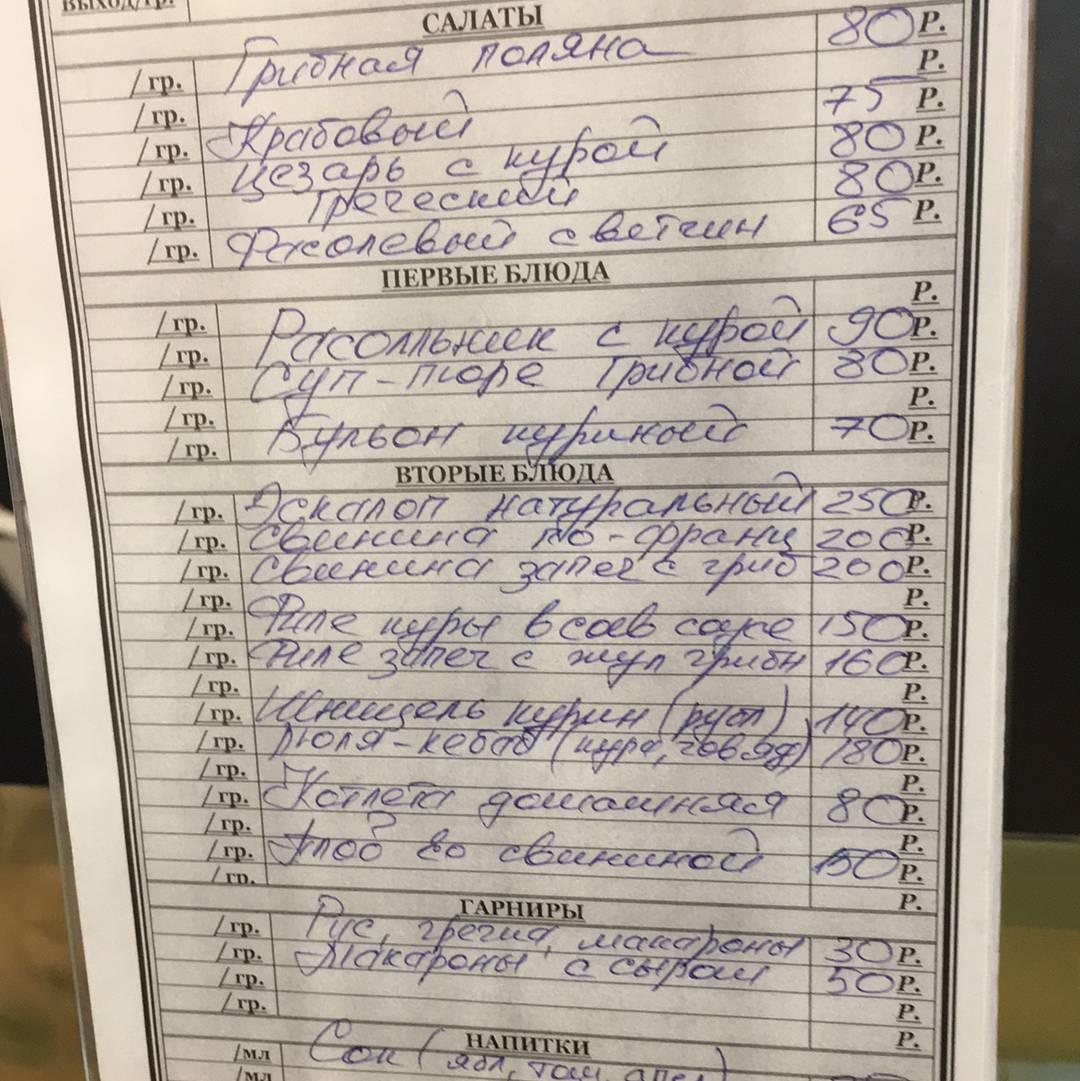 ВЫХОД/гр.
САЛАТЫ
/гр. Грибная поляна 80 Р.
/гр. Р.
/гр. Крабовый 75 Р.
/гр. Цезарь с курой 80 Р.
/гр. Греческий 80 Р.
/гр. Фасолевый с ветчин 65 Р.
ПЕРВЫЕ БЛЮДА
Р.
/гр. Рассольник с курой 90 Р.
/гр. Суп-пюре грибной 80 Р.
/гр. Р.
/гр. Бульон куриный 70 Р.
/гр.
ВТОРЫЕ БЛЮДА
/гр. Эскалоп натуральный 250 Р.
/гр. Свинина по-франц 200 Р.
/гр. Свинина запеч с гриб 200 Р.
/гр. Р.
/гр. Филе куры в соев соусе 150 Р.
/гр. Филе запеч с жул грибн 160 Р.
/гр. Р.
/гр. Шницель курин (рубл) 140 Р.
/гр. Люля-кебаб (кура, говяд) 180 Р.
/гр. Р.
/гр. Котлета домашняя 80 Р.
/гр. Р.
/гр. со свининой 150 Р.
/гр. Р.
ГАРНИРЫ
/гр. Рис, гречка, макароны 30 Р.
/гр. Макароны с сыром 50 Р.
/гр. Р.
/гр. Р.
НАПИТКИ
/мл Сок (ябл, том, апел)
/мл